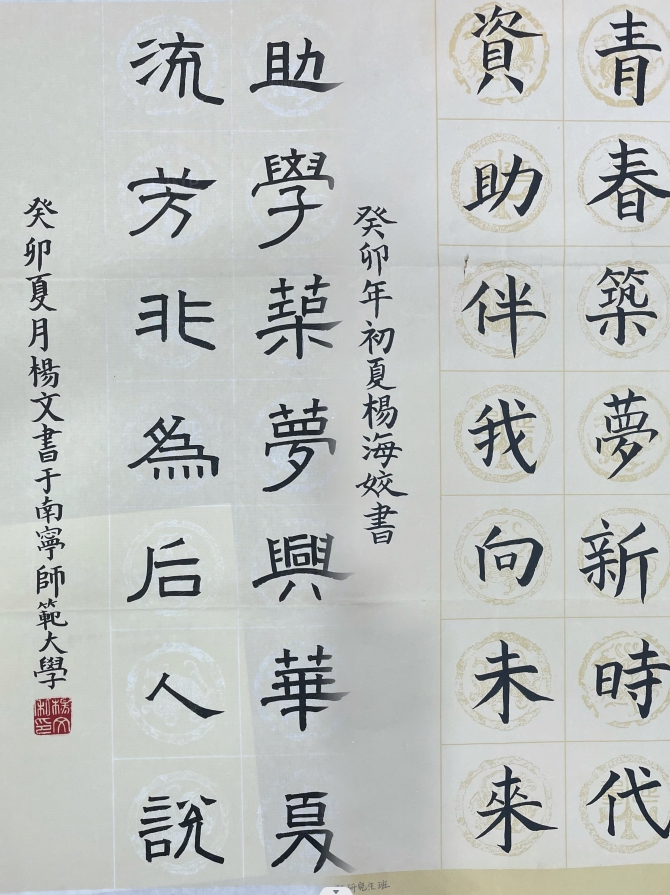 青春築夢新時代
資助伴我向未來
癸卯年初夏楊海姣書
助學築夢興華夏
流芳非為后人說
癸卯夏月楊文書于南寧師範大學